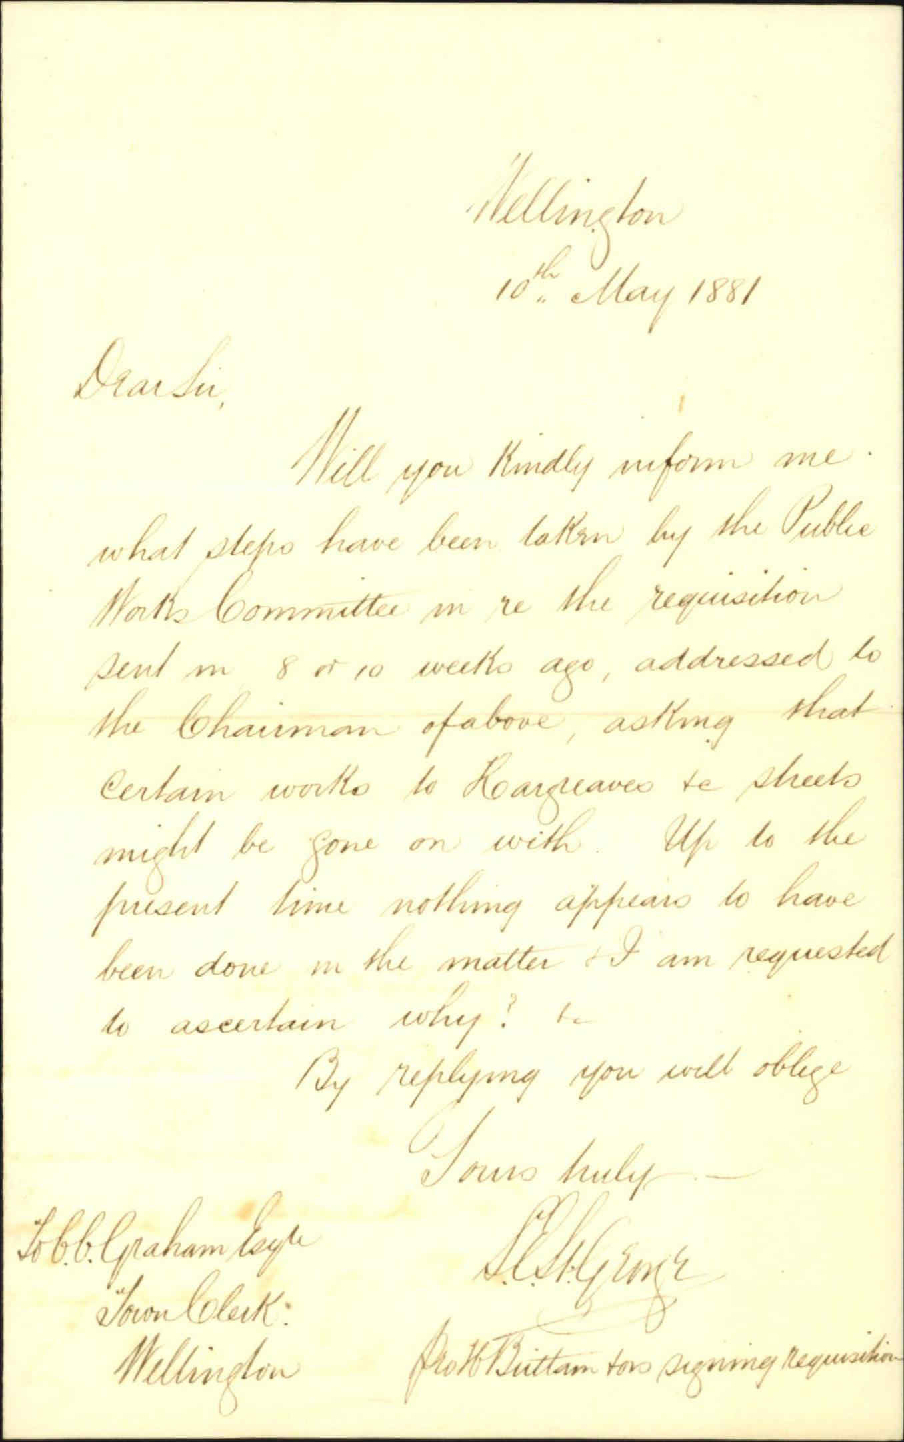 Wellington
10th May 1881
Dear Sir,
Will you Kindly inform me
what steps have been taken by the Public
Works Committee in re the requisition
sent in 8 or 10 weeks ago, addressed to
the Chairman of above, asking that
certain works to Hargreaves &c streets
might be gone on with. Up to the
present time nothing appears to have
been done in the matter & I am requested
to ascertain why? &c
By replying you will oblige
Yours truly
St. George
To C.C. Graham Esqre
Town Clerk.
Wellington
pro H Brittain & ors signing requisition